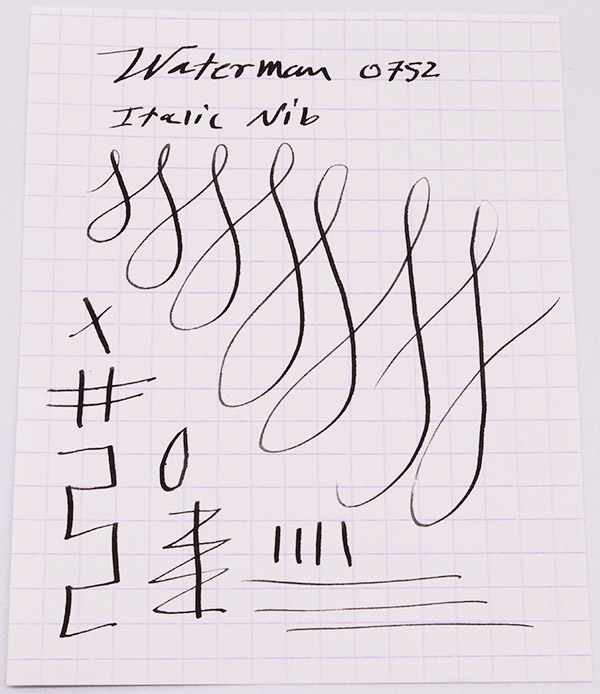 Waterman 0752
Italic Nib